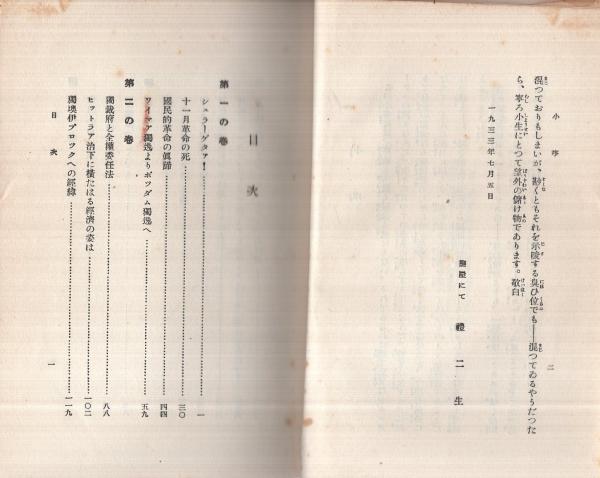 小序
二
混つておりもしまいが、尠くともそれを示唆する臭ひ位でも――混つてゐるやうだつた
ら、寧ろ小生にとつて望外の儲け物であります。敬白
一九三三年七月五日
にて
禮二生
目次
第一の巻
シュラーゲタァ!……一
十一月革命の死……三〇
國民的革命の眞諦……四四
ワイマア獨逸よりポツダム獨逸へ……五九
第二の巻
獨裁府と全權委任法……八八
ヒットラア治下に橫たはる經濟の姿は……一〇二
獨墺伊ブロックへの經緯……一一九
目次
一